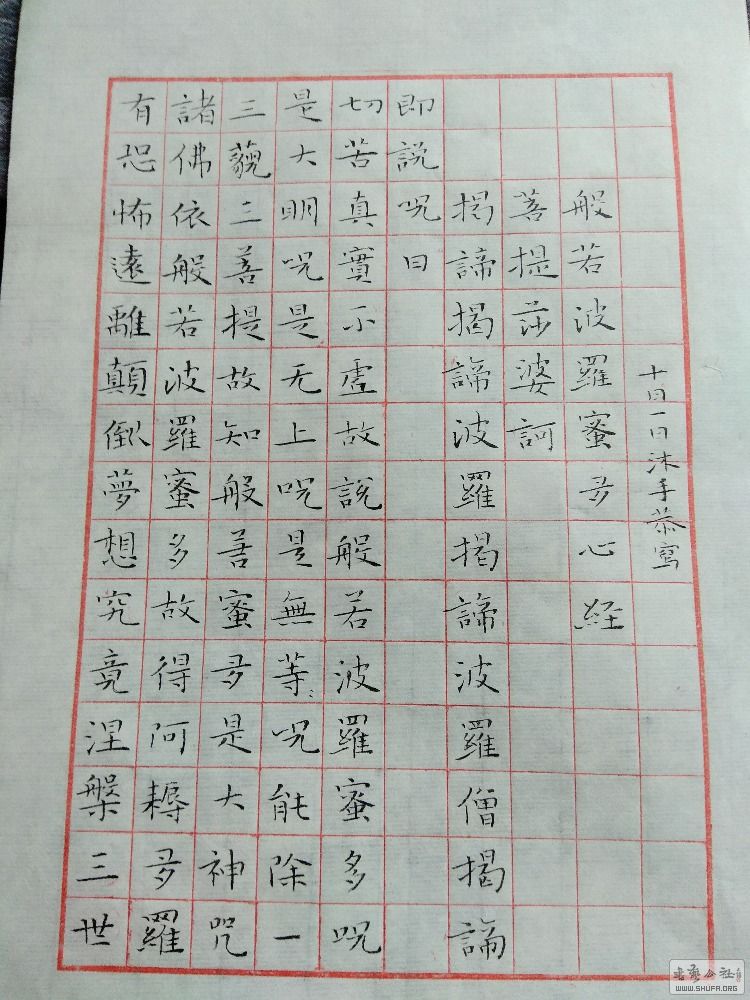 有恐怖遠離顛倒夢想究竟涅槃三世
諸佛依般若波羅蜜多故得阿耨多羅
三藐三善提故知般善蜜多是大神咒
是大明呪是无上呪是無等:呪能除一
切苦真實不虛故說般若波羅蜜多呪
即說呪曰
揭諦揭諦波羅揭諦波羅僧揭諦
菩提莎婆訶
般若波羅蜜多心経
十月一日沐手恭寫
书法公社
WWW.SHUFA.ORG